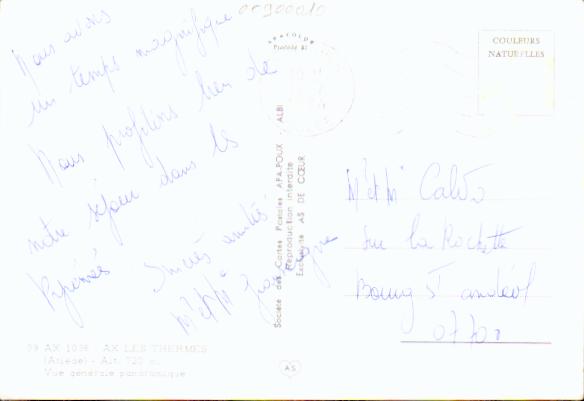 00900010
Nous avons
un temps magnifique
Nous profitons bien de
notre séjour dans les
Pyrénées
Sincères amitiés
M et Mme
APACOLOR
Procédé
COULEURS
NATURELLES
Société des Cartes Postales APA-POUX - ALBI
Reproduction interdite
Exclusivité AS DE CŒUR
M et Mme Calvo
Sur la Rochette
Bourg St andéol
07700
09 AX 1098 AX LES THERMES
(Ariège) - Alt. 720 m.
Vue générale panoramique
AS